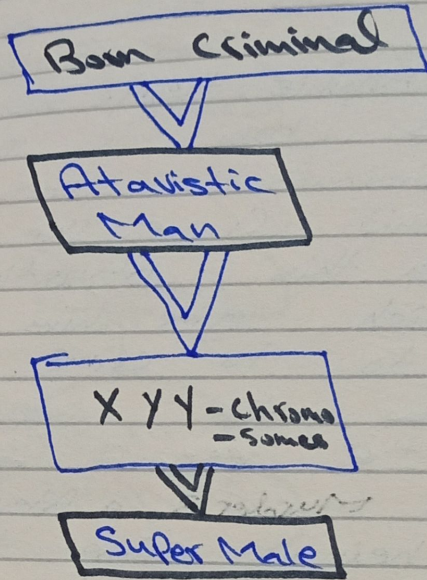 Born Criminal
Atavistic
Man
XYY-chromo
-somes
Super Male